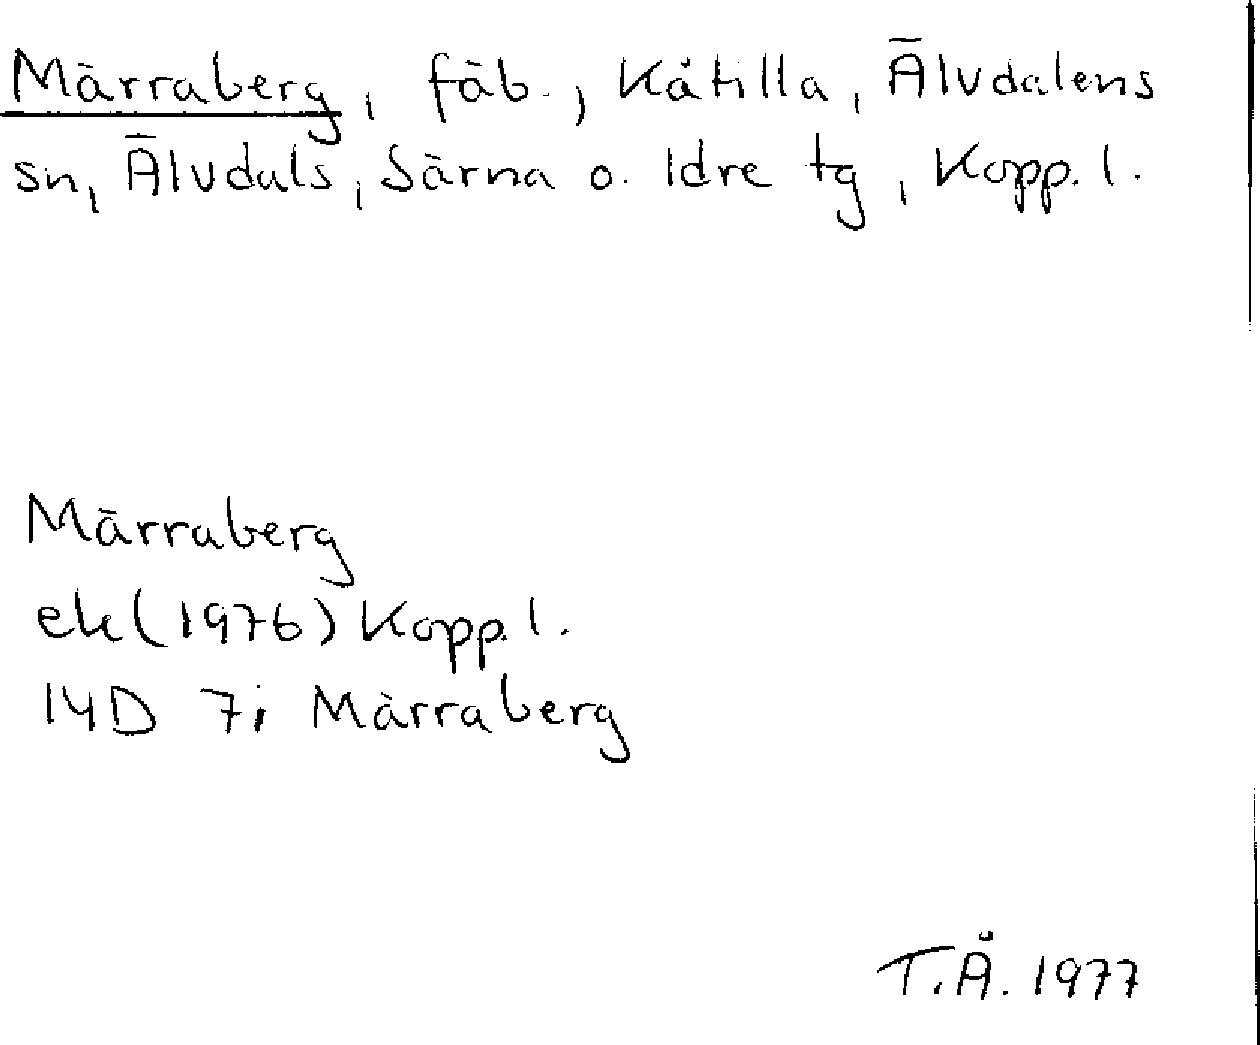 Märraberg, fäb., Kåtilla, Älvdalens
sn, Älvdals, Särna o. Idre tg, Kopp. l.
Märraberg
ek (1976) Kopp. l.
14D 7i Märraberg
T.Å. 1977